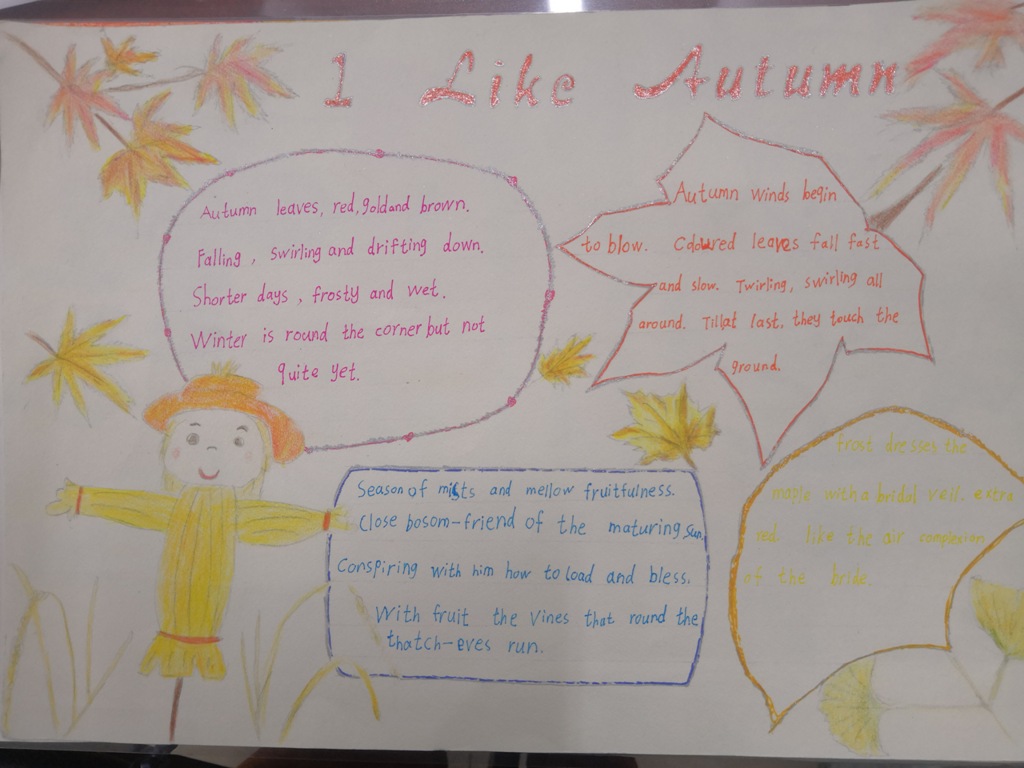 I Like Autumn
Autumn leaves, red, gold and brown.
Falling, swirling and drifting down.
Shorter days, frosty and wet.
Winter is round the corner but not
quite yet.
Autumn winds begin
to blow. Coloured leaves fall fast
and slow. Twirling, swirling all
around. Till at last, they touch the
ground.
Season of mists and mellow fruitfulness.
Close bosom-friend of the maturing sun.
Conspiring with him how to load and bless.
With fruit the vines that round the
thatch-eves run.
frost dresses the
maple with a bridal veil. extra
red. like the air complexion
of the bride.